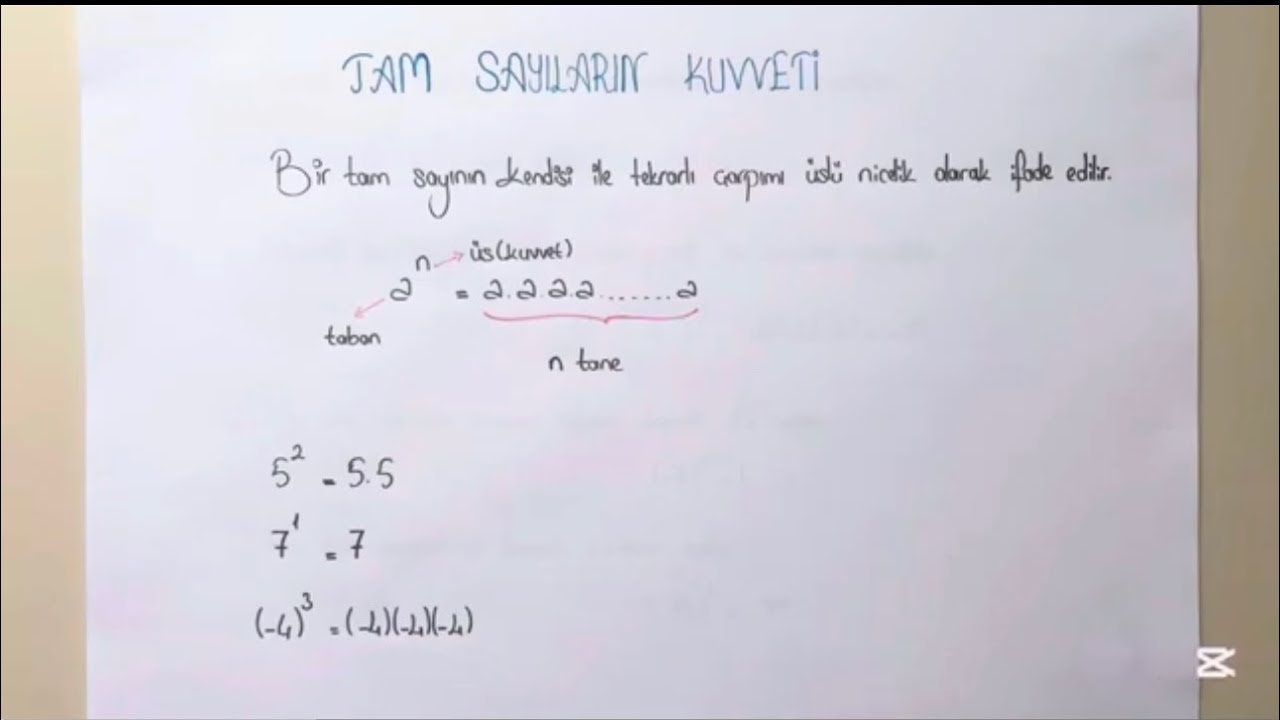 TAM SAYILARIN KUVVETİ
Bir tam sayının kendisi ile tekrarlı çarpımı üslü nicelik olarak ifade edilir.
n → üs(kuvvet)
a = a.a.a.a.......a
taban
n tane
5² = 5.5
7¹ = 7
(-4)³ = (-4)(-4)(-4)